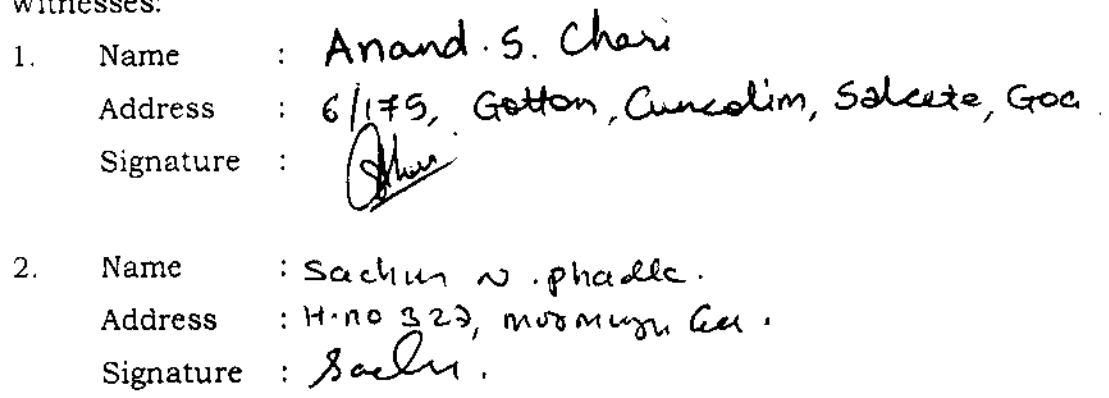 witnesses:
1. Name : Anand. S. Chari
Address : 6/175, Gotton, Cuncolim, Salcete, Goa.
Signature :
2. Name : Sachin N. phadle.
Address : H.no 327, mormugu Goa.
Signature : Sachi.